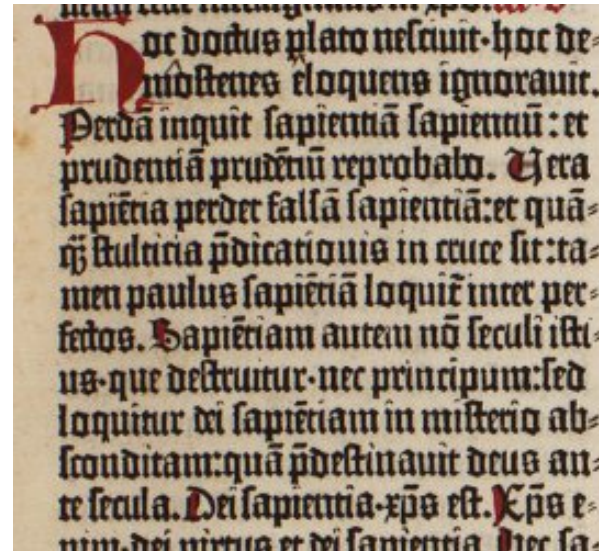 Hoc doctus plato nesciuit·hoc de⸗
mostenes eloquens ignorauit.
Perdā inquit sapientiā sapientiū: et
prudentiā prudētiū reprobabo. Uera
sapiētia perdet falsā sapientiā:et quā⸗
q̄ stulticia p̄dicationis in cruce sit:ta⸗
men paulus sapiētiā loquit̄ inter per⸗
fectos. Sapiētiam autem nō seculi isti⸗
us·que destruitur·nec principum:sed
loquitur dei sapiētiam in misterio ab⸗
sconditam:quā p̄destinauit deus an⸗
te secula. Dei sapientia·xp̄s est. Xp̄s e⸗
nim·dei virtus et dei sapientia. Hec sa⸗